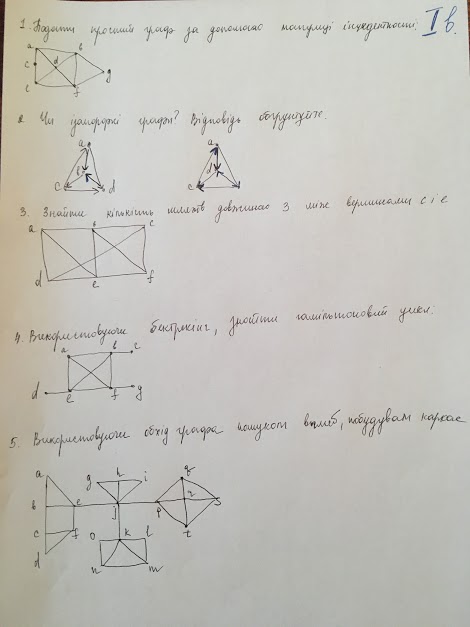 1. Подати простий граф за допомогою матриці інцидентності. II в.
a b
c d g
e f
2 Чи ізоморфні графи? Відповідь обґрунтуйте.
a a
b d
c d c
3. Знайти кількість шляхів довжиною 3 між вершинами c і e
a b c
d e f
4. Використовуючи бектрекінг, знайти гамільтоновий цикл.
a b c
d e f g
5. Використовуючи обхід графа пошуком вглиб, побудувати каркас
a g h i q
b e j p r s
c f o k l t
d n m